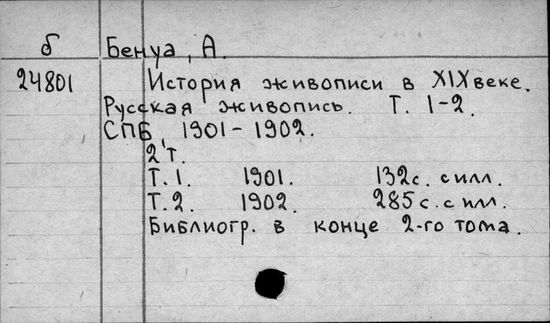 б Бенуа, А.
24801 История живописи в XIX веке.
Русская живопись. Т. 1-2.
СПБ 1901-1902.
2 т.
Т.1. 1901. 132 с. с илл.
Т.2. 1902. 285 с. с илл.
Библиогр. в конце 2-го тома.